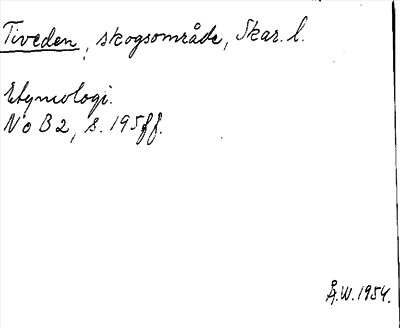 Tiveden, skogsområde, Skar. l.
Etymologi.
NoB 2, s. 195ff.
Å.W. 1954.